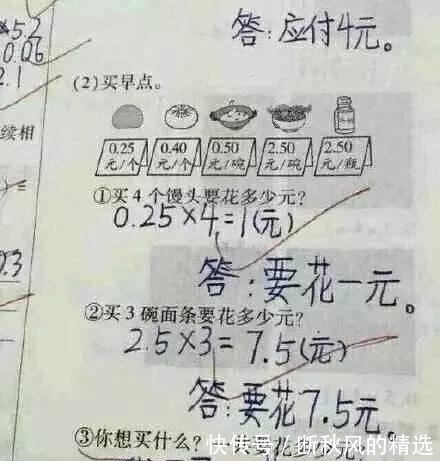 ×5.2
0.06
2.1
答:应付4元。
(2)买早点。
续相
0.25 0.40 0.50 2.50 2.50
元/个 元/个 元/碗 元/碗 元/瓶
①买4个馒头要花多少元?
0.25×4=1(元)
0.3
答:要花一元。
②买3碗面条要花多少元?
2.5×3=7.5(元)
答:要花7.5元
③你想买什么?一共要花多少元?
快传号/断秋风的精选